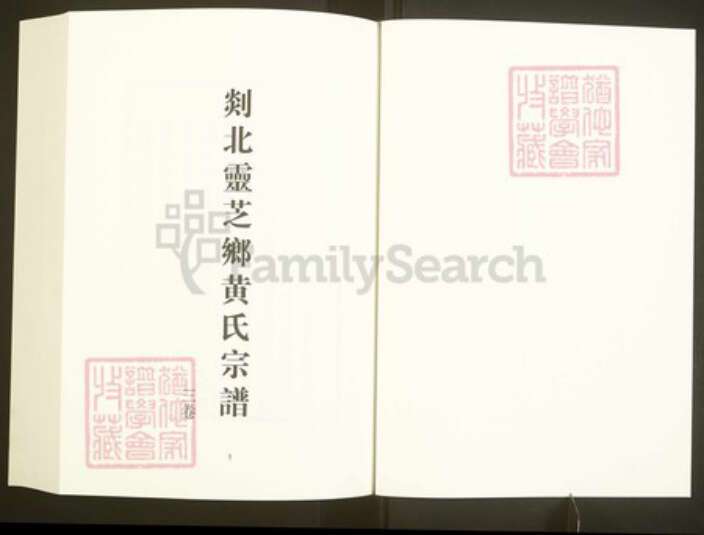 剡北靈芝鄉黃氏宗譜
三卷
猶他家
譜學會
收藏
FamilySearch
猶他家
譜學會
收藏